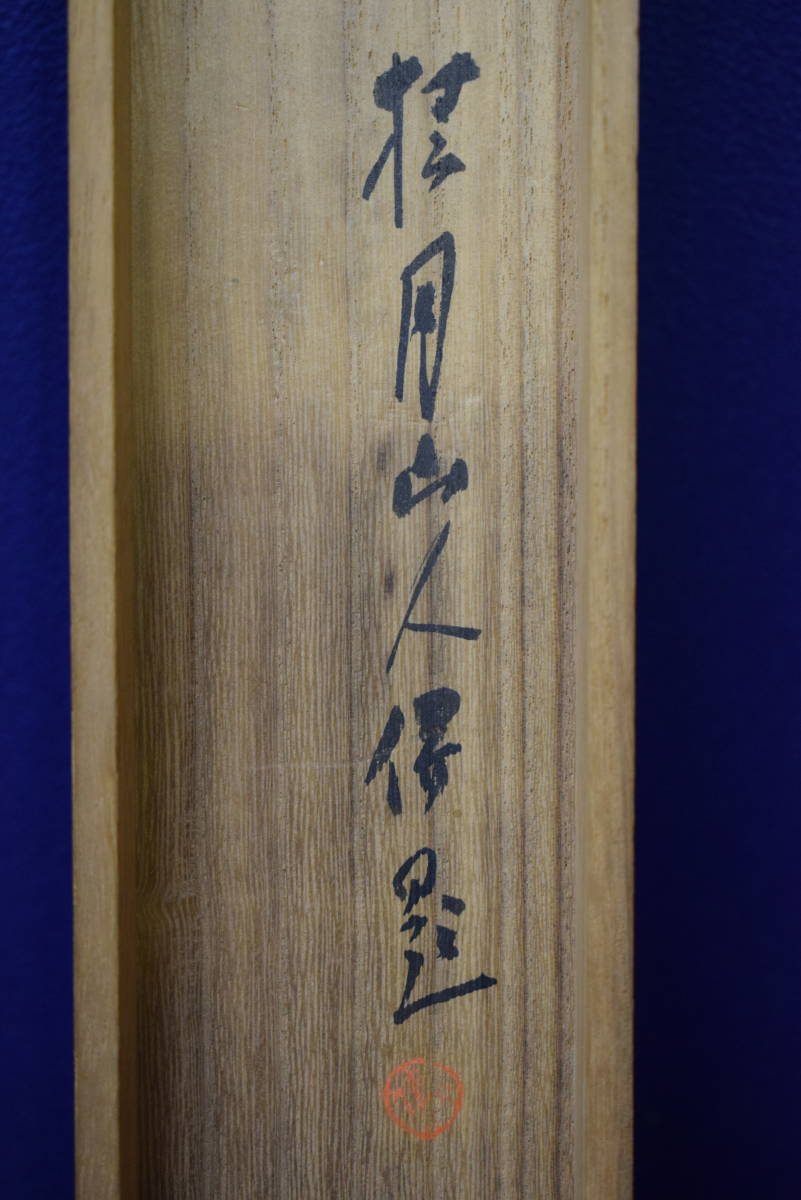 桂月山人保題